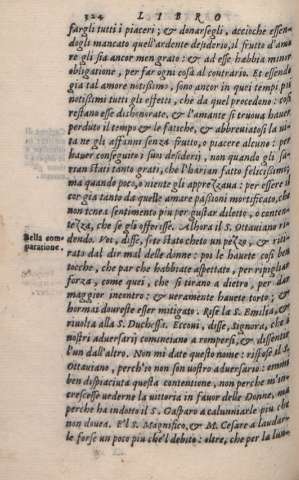 324 LIBRO
fargli tutti i piaceri; & donarsegli, accioche essen-
dogli mancato quell'ardente desiderio, il frutto d'amo
re gli sia ancor men grato: & ad esse habbia minor
obligatione, per far ogni cosa al contrario. Et essendo
gia tal amore notissimo, sono ancor in quei tempi poi
notissimi tutti gli effetti, che da quel procedono: cosi
restano esse dishonorate, & l'amante si truoua hauer
perduto il tempo & le fatiche, & abbreuiatosi la ui-
ta ne gli affanni senza frutto, o piacere alcuno: per
hauer conseguito i suoi desiderij, non quando gli sa-
rian stati tanto grati, che l'harian fatto felicissimo;
ma quando poco, o niente gli apprezzaua: per essere il
cor gia tanto da quelle amare passioni mortificato, che
non tenea sentimento piu per gustar diletto, o conten-
tezza, che se gli offerisse. Alhora il S. Ottauiano ri-
Bella com
paratione.
dendo. Voi, disse, sete stato cheto un pezzo, & riti-
rato dal dir mal delle donne: poi le hauete cosi ben
tocche, che par che habbiate aspettato, per ripigliar
forza, come quei, che si tirano a dietro, per dar
maggior incontro: & ueramente hauete torto; &
hormai doureste esser mitigato. Rise la S. Emilia, &
riuolta alla S. Duchessa. Eccoui, disse, Signora, che i
nostri aduersarij cominciano a rompersi, & dissentir
l'un dall'altro. Non mi date questo nome: rispose il S.
Ottauiano, perch'io non son uostro aduersario: emmi
ben dispiaciuta questa contentione, non perche m'in-
crescesse uederne la uittoria in fauor delle Donne, ma
perche ha indotto il S. Gasparo a calunniarle piu che
non douea. E'l S. Magnifico, & M. Cesare a laudar-
le forse un poco piu che'l debito: oltre, che per la lun-